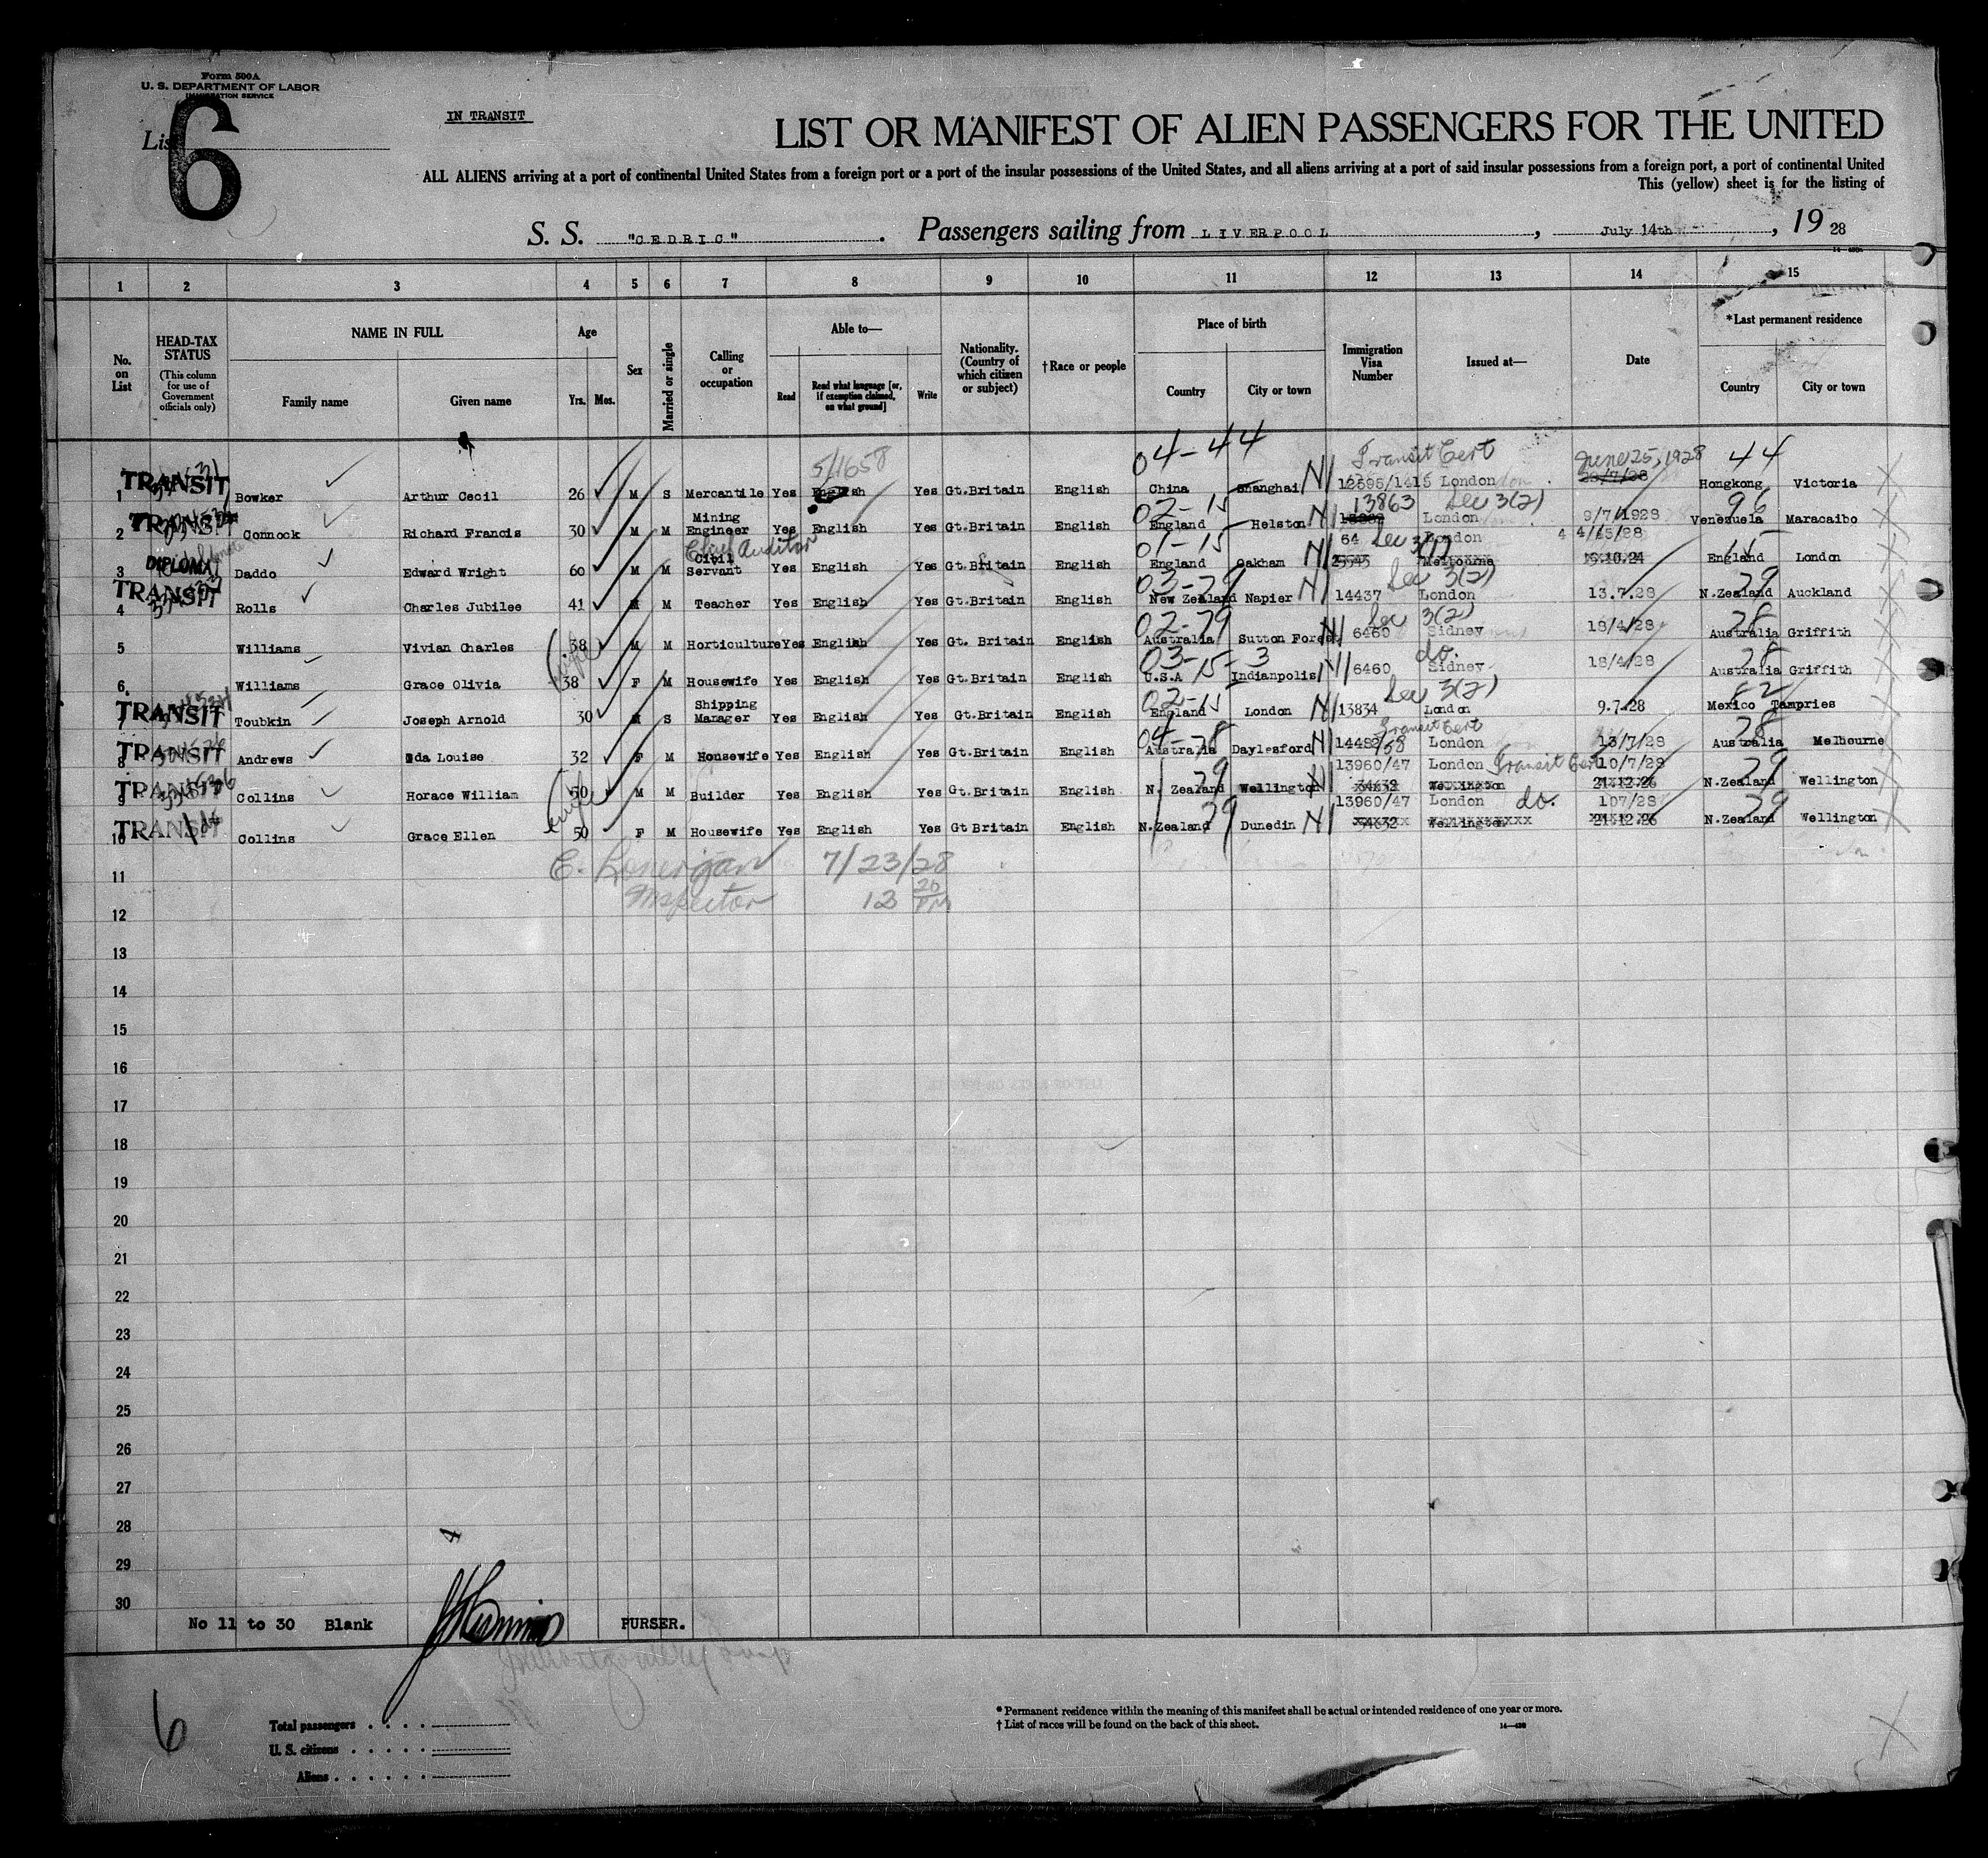 Form 500A
U. S. DEPARTMENT OF LABOR
IMMIGRATION SERVICE
List 6
IN TRANSIT
LIST OR MANIFEST OF ALIEN PASSENGERS FOR THE UNITED
ALL ALIENS arriving at a port of continental United States from a foreign port or a port of the insular possessions of the United States, and all aliens arriving at a port of said insular possessions from a foreign port, a port of continental United
This (yellow) sheet is for the listing of
S. S. "CEDRIC". Passengers sailing from LIVERPOOL, July 14th, 19 28
1 2 3 4 5 6 7 8 9 10 11 12 13 14 15
No. on List
HEAD-TAX STATUS (This column for use of Government officials only)
NAME IN FULL Family name Given name
Age Yrs. Mos.
Sex
Married or single
Calling or occupation
Able to— Read Read what language [or, if exemption claimed, on what ground] Write
Nationality. (Country of which citizen or subject)
†Race or people
Place of birth Country City or town
Immigration Visa Number
Issued at—
Date
*Last permanent residence Country City or town
5/1658 04-44 Transit Cert June 25, 1928 44
TRANSIT 1 Bowker Arthur Cecil 26 M S Mercantile Yes English Yes Gt.Britain English China Shanghai 12695/1415 London 20/7/28 Hongkong Victoria
02-15 13863 Sec 3(2) 96
TRANSIT 2 Connock Richard Francis 30 M M Mining Engineer Yes English Yes Gt.Britain English England Helston London 9/7/1928 Venezuela Maracaibo
Chief Auditor 01-15 64 London 4/45/28 15
DIPLOMA 3 Daddo Edward Wright 60 M M Civil Servant Yes English Yes Gt.Britain English England Oakham Melbourne 15.10.24 England London
03-29 Sec 3(2) 29
TRANSIT 4 Rolls Charles Jubilee 41 M M Teacher Yes English Yes Gt.Britain English New Zealand Napier 14437 London 13.7.28 N.Zealand Auckland
Sec 3(2) 28
5 Williams Vivian Charles 38 M M Horticulture Yes English Yes Gt. Britain English Australia Sutton Forest 6460 Sidney 18/4/28 Australia Griffith
wife 03-15-3 do. 28
6 Williams Grace Olivia 38 F M Housewife Yes English Yes Gt.Britain English U.S.A Indianpolis 6460 Sidney 18/4/28 Australia Griffith
02-15 Sec 3(2)
TRANSIT 7 Toubkin Joseph Arnold 30 M S Shipping Manager Yes English Yes Gt.Britain English England London 13834 London 9.7.28 Mexico Tampries
04-28 Transit Cert 28
TRANSIT 8 Andrews Ida Louise 32 F M Housewife Yes English Yes Gt.Britain English Australia Daylesford London 13/7/28 Australia Melbourne
29 13960/47 London Transit Cert 10/7/28 29
TRANSIT 9 Collins Horace William 50 M M Builder Yes English Yes Gt.Britain English N. Zealand Wellington 34632 Wellington 21.12.26 N.Zealand Wellington
wife 29 13960/47 London do. 107/28 29
TRANSIT 10 Collins Grace Ellen 50 F M Housewife Yes English Yes Gt Britain English N.Zealand Dunedin Wellington 21.12.26 N.Zealand Wellington
11 E. Lonergan 7/23/28
12 Inspector 12 20 PM
13
14
15
16
17
18
19
20
21
22
23
24
25
26
27
28 4
29
30
No 11 to 30 Blank PURSER.
6
Total passengers
U. S. citizens
Aliens
* Permanent residence within the meaning of this manifest shall be actual or intended residence of one year or more.
† List of races will be found on the back of this sheet.